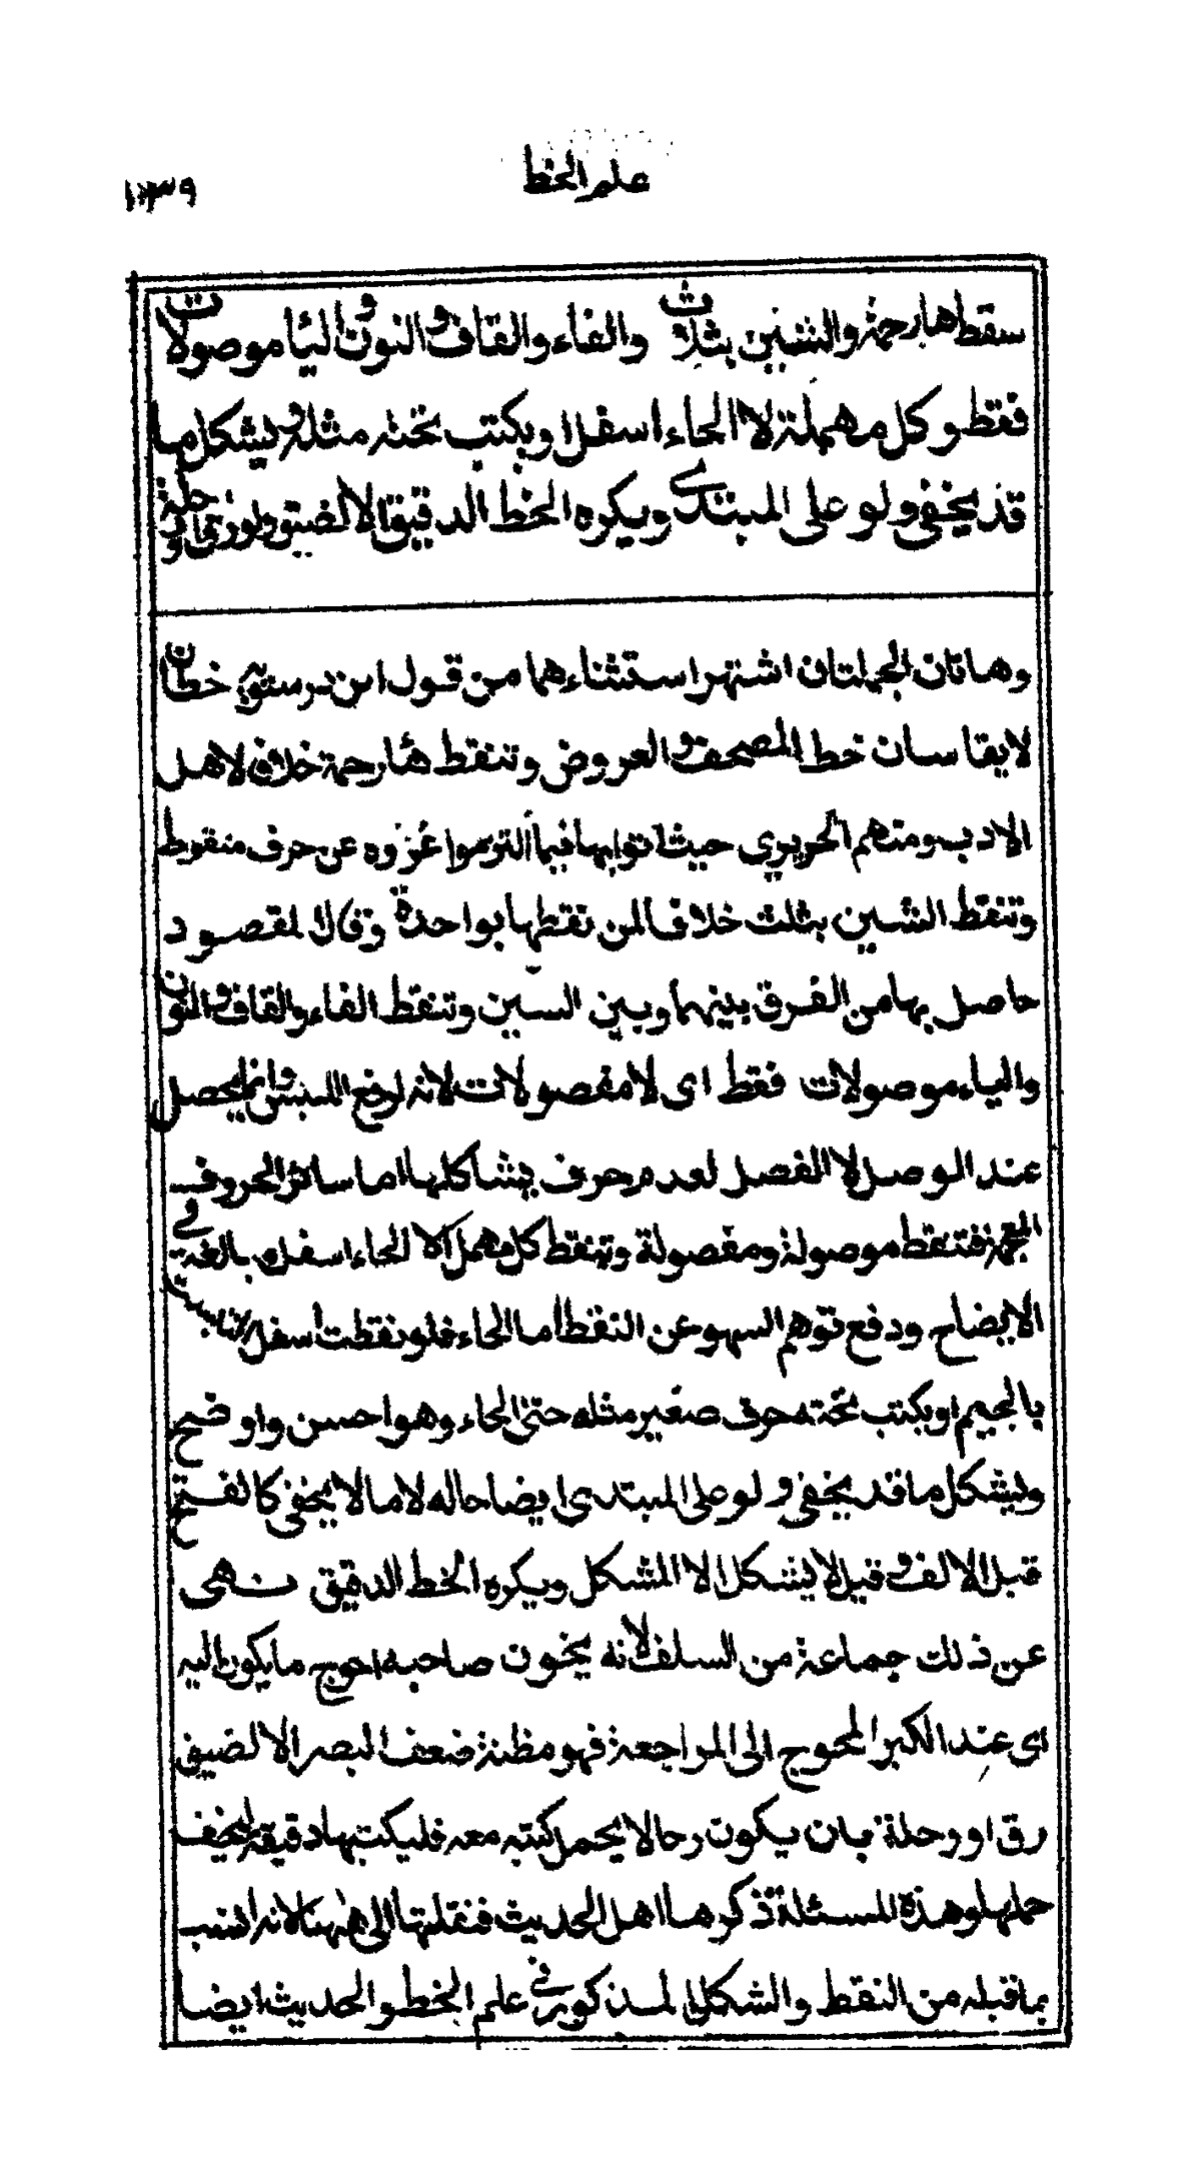 علم الخط
١٣٩
سقط ها رحمة والشين بثلاث والفاء والقاف والنون واليا موصولات
فقط وكل مهملة لا الحاء اسفل او يكتب تحته مثله ويشكل ما
قد يخفى ولو على المبتدى ويكره الخط الدقيق الا لضيق رق او رحلة
وهاتان الجملتان اشتهر استثناءهما من قول ابن درستويه خطان
لا يقاسان خط المصحف والعروض وتنقط هٰا رحمة خلافا لاهل
الادب ومنهم الحريري حيث اتوا بها فيما التزموا عزوه عن حرف منقوط
وتنقط الشين بثلث خلافا لمن نقطها بواحدة وقال المقصود
حاصل بها من الفرق بينها وبين السين وتنقط الفاء والقاف والنون
والياء موصولات فقط اى لا مفصولات لانه لرفع اللبس وانما يحصل
عند الوصل لا الفصل لعدم حرف يشاكلها اما سائر الحروف
المعجمة فتنقط موصولة ومفصولة وتنقط كل مهمل الا الحاء اسفل مبالغة في
الايضاح ودفع توهم السهو عن النقط اما الحاء فلو نقطت اسفل لالتبست
بالجيم او يكتب تحته حرف صغير مثله حتى الحاء وهو احسن واوضح
ويشكل ما قد يخفى ولو على المبتدى ايضا حاله لا ما لا يخفى كالفتح
قبل الالف وقيل لا يشكل الا المشكل ويكره الخط الدقيق نهى
عن ذلك جماعة من السلف لانه يخون صاحبه احوج ما يكون اليه
اى عند الكبر المحوج الى المراجعة فهو مظنة ضعف البصر الا لضيق
رق او رحلة بان يكون رحالا يحمل كتبه معه فليكتبها دقيقة ليخف
حملها وهذه المسئلة ذكرها اهل الحديث فنقلتها الى هٰهنا لانه انسب
بما قبله من النقط والشكل المذكور في علم الخط والحديث ايضا